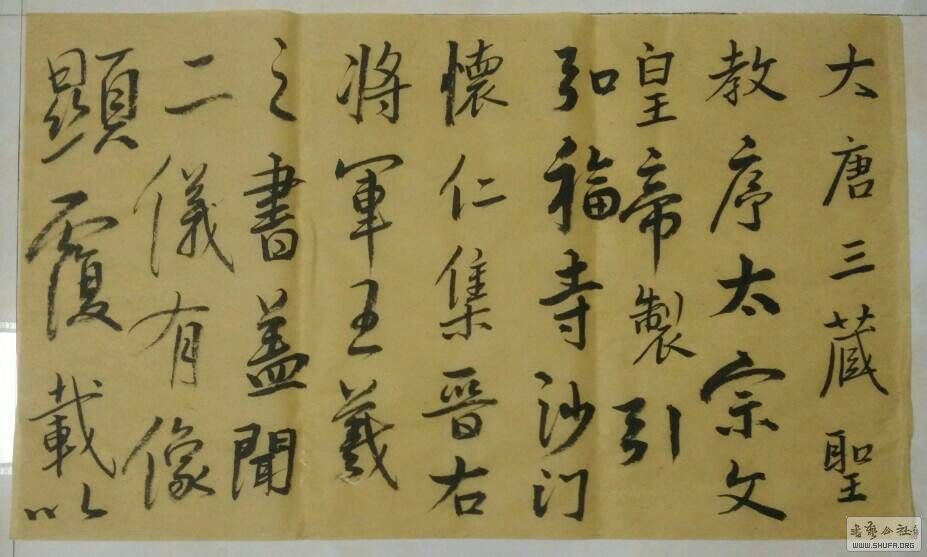 大唐三藏聖
教序太宗文
皇帝製引
弘福寺沙门
懷仁集晉右
將軍王羲
之書蓋聞
二儀有像
顯覆載以
書藝公社
WWW.SHUFA.ORG